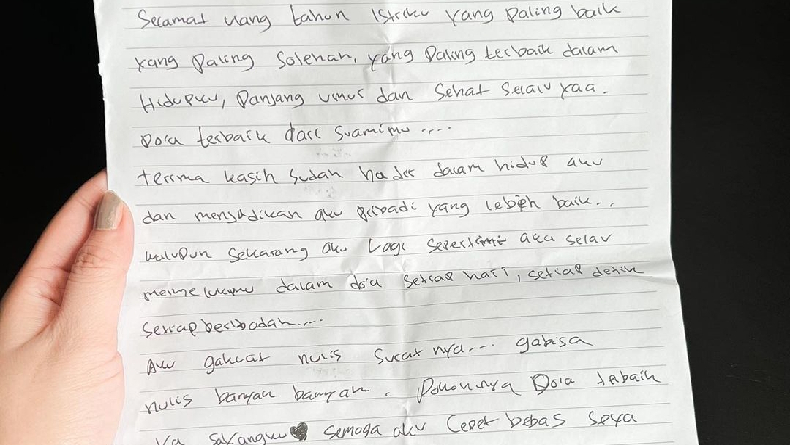 Selamat ulang tahun istriku yang paling baik
yang paling solehah, yang paling terbaik dalam
Hidupku, Panjang umur dan Sehat Selalu yaa.
Doa terbaik dari Suamimu ....
terima kasih sudah hadir dalam hidup aku
dan menjadikan aku pribadi yang lebih baik..
walupun sekarang aku lagi seperti aku selalu
memelukmu dalam do'a setiap hari, setiap detik
setiap beribadah...
Aku gakuat nulis surat nya... gabisa
nulis banyak banyak. Pokonya Doa terbaik
ya sayangku semoga aku cepet bebas